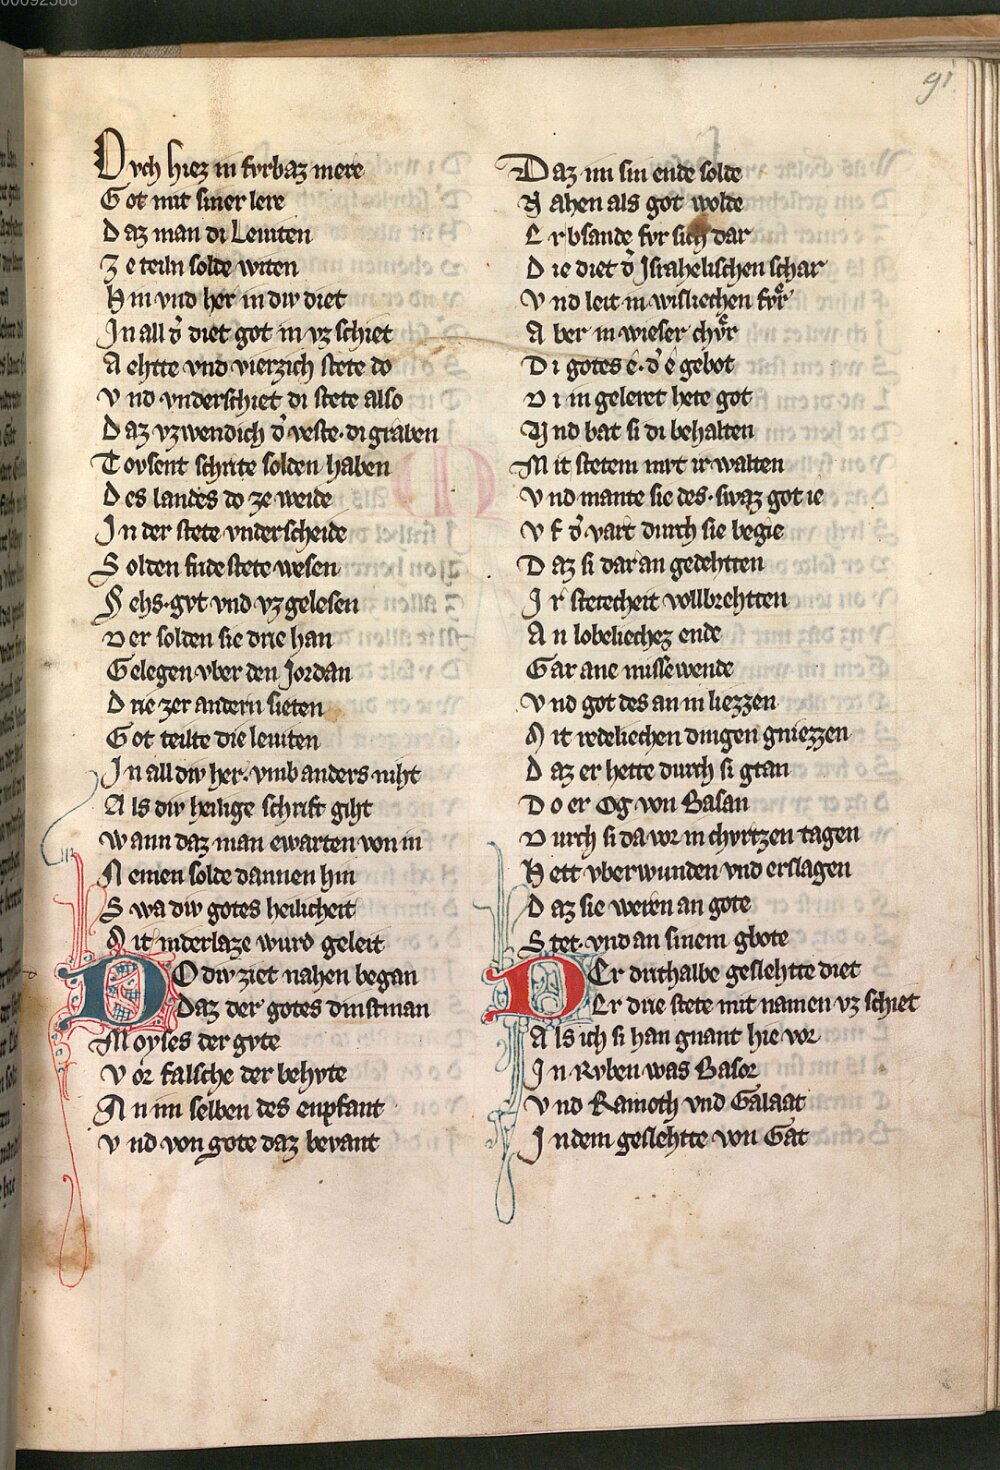 91
Ovch hiez in fvrbaz mere
Got mit siner lere
Daz man di Leuiten
Ze teiln solde witen
Hin vnd her in div diet
In all d' diet got in vz schiet
Aehtte vnd vierzich stete do
Vnd vnderschiet di stete also
Daz vzwendich d' veste. di graben
Tovsent schrite solden haben
Des landes do ze weide
In der stete vnderscheide
Solden fride stete wesen
Sehs. gvt vnd vz gelesen
Der solden sie drie han
Gelegen vber den Jordan
Drie zer andern sieten
Got teilte die leuiten
In all div her. vmb anders niht
Als div heilige schrift giht
Wann daz man ewarten von in
Nemen solde dannen hin
Swa div gotes heilicheit
Mit niderlaze wurd geleit
DO div ziet nahen began
Daz der gotes dinstman
Moyses der gvte
Vor falsche der behvte
An im selben des enpfant
Vnd von gote daz bevant
Daz im sin ende solde
Nahen als got wolde
Er bsande fvr sich dar
Die diet d' Israhelischen schar
Vnd leit in wisliechen fvͦr
Aber in wieser chvͦr
Di gotes e. d' e gebot
Di in geleret hete got
Vnd bat si di behalten
Mit stetem mvt ir walten
Vnd mante sie des. swaz got ie
Vf d' vart durch sie begie
Daz si dar an gedehtten
Ir stetecheit vollbrehtten
An lobeliechez ende
Gar ane missewende
Vnd got des an in liezzen
Mit redeliechen dingen gniezzen
Daz er hette durch si gtan
Do er Og von Basan
Durch si da vor in chvrtzen tagen
Hett vberwunden vnd erslagen
Daz sie weren an gote
Stet. vnd an sinem gbote
DEr drithalbe geslehtte diet
Er drie stete mit namen vz schiet
Als ich si han gnant hie vor
In Rvben was Basor
Vnd Ramoth vnd Galaat
In dem geslehtte von Gat